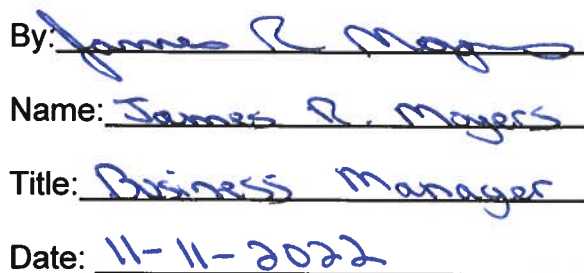 By: James R Mayers
Name: James R. Mayers
Title: Business Manager
Date: 11-11-2022